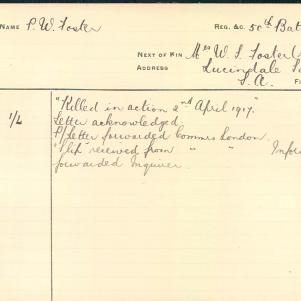 NAME P. W. Foster REG. &C. 50th Bat
NEXT OF KIN Mrs W. S. Foster
ADDRESS Lucindale
S. A.
1/4 "Killed in action 2nd April 1917."
Letter acknowledged.
P/Letter forwarded Commrs London
"Slip" received from " " Infor
forwarded inquirer